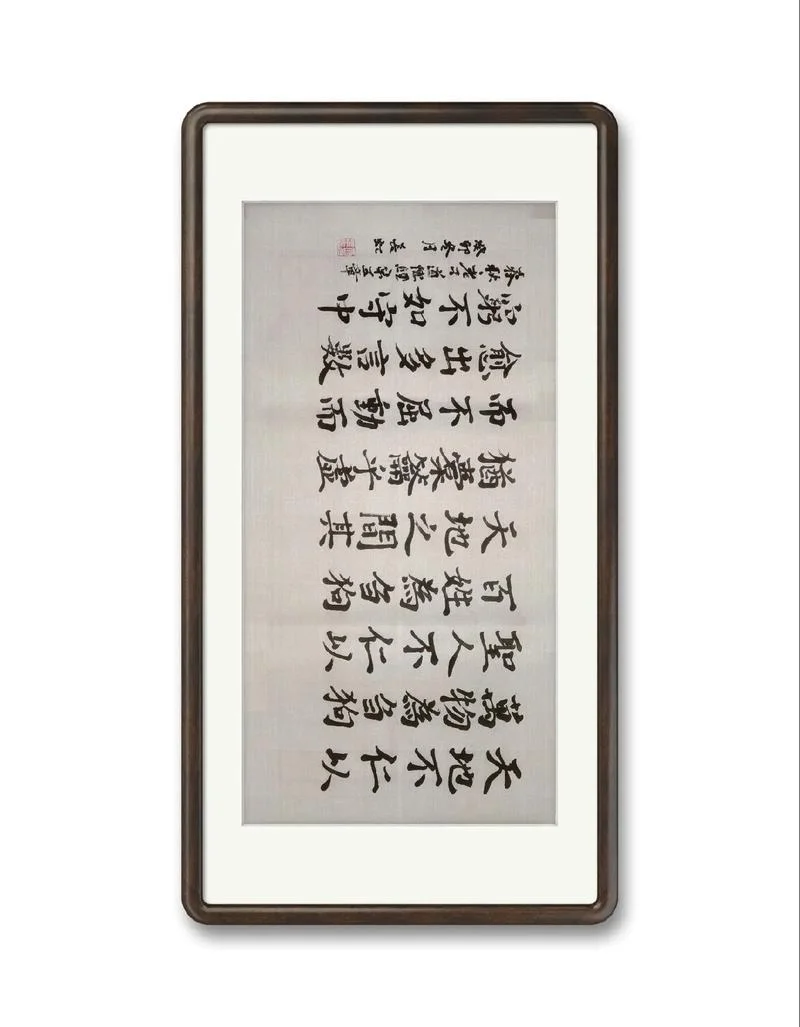 天地不仁以
萬物為芻狗
聖人不仁以
百姓為芻狗
天地之間其
猶橐籥乎虛
而不屈動而
愈出多言數
窮不如守中
春秋老子道德經第五章
癸卯冬月